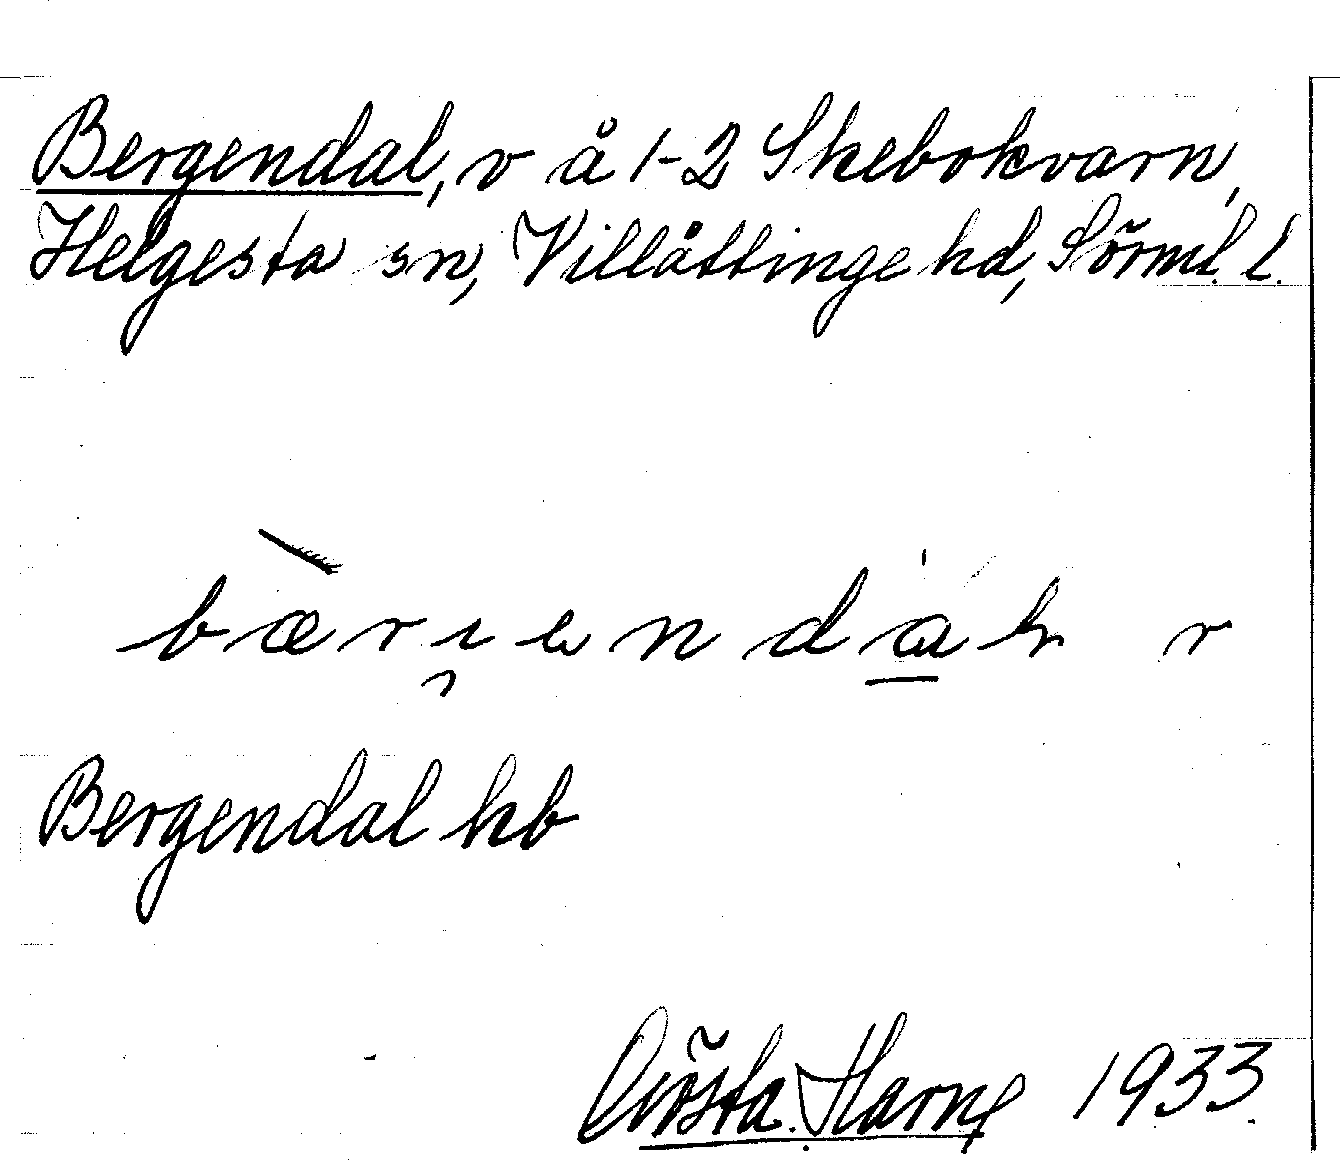 Bergendal, v å 1-2 Skebokvarn,
Helgesta sn, Villåttinge hd, Sörml. l.
bæri̯endal r
Bergendal kb
Gösta Harne 1933.